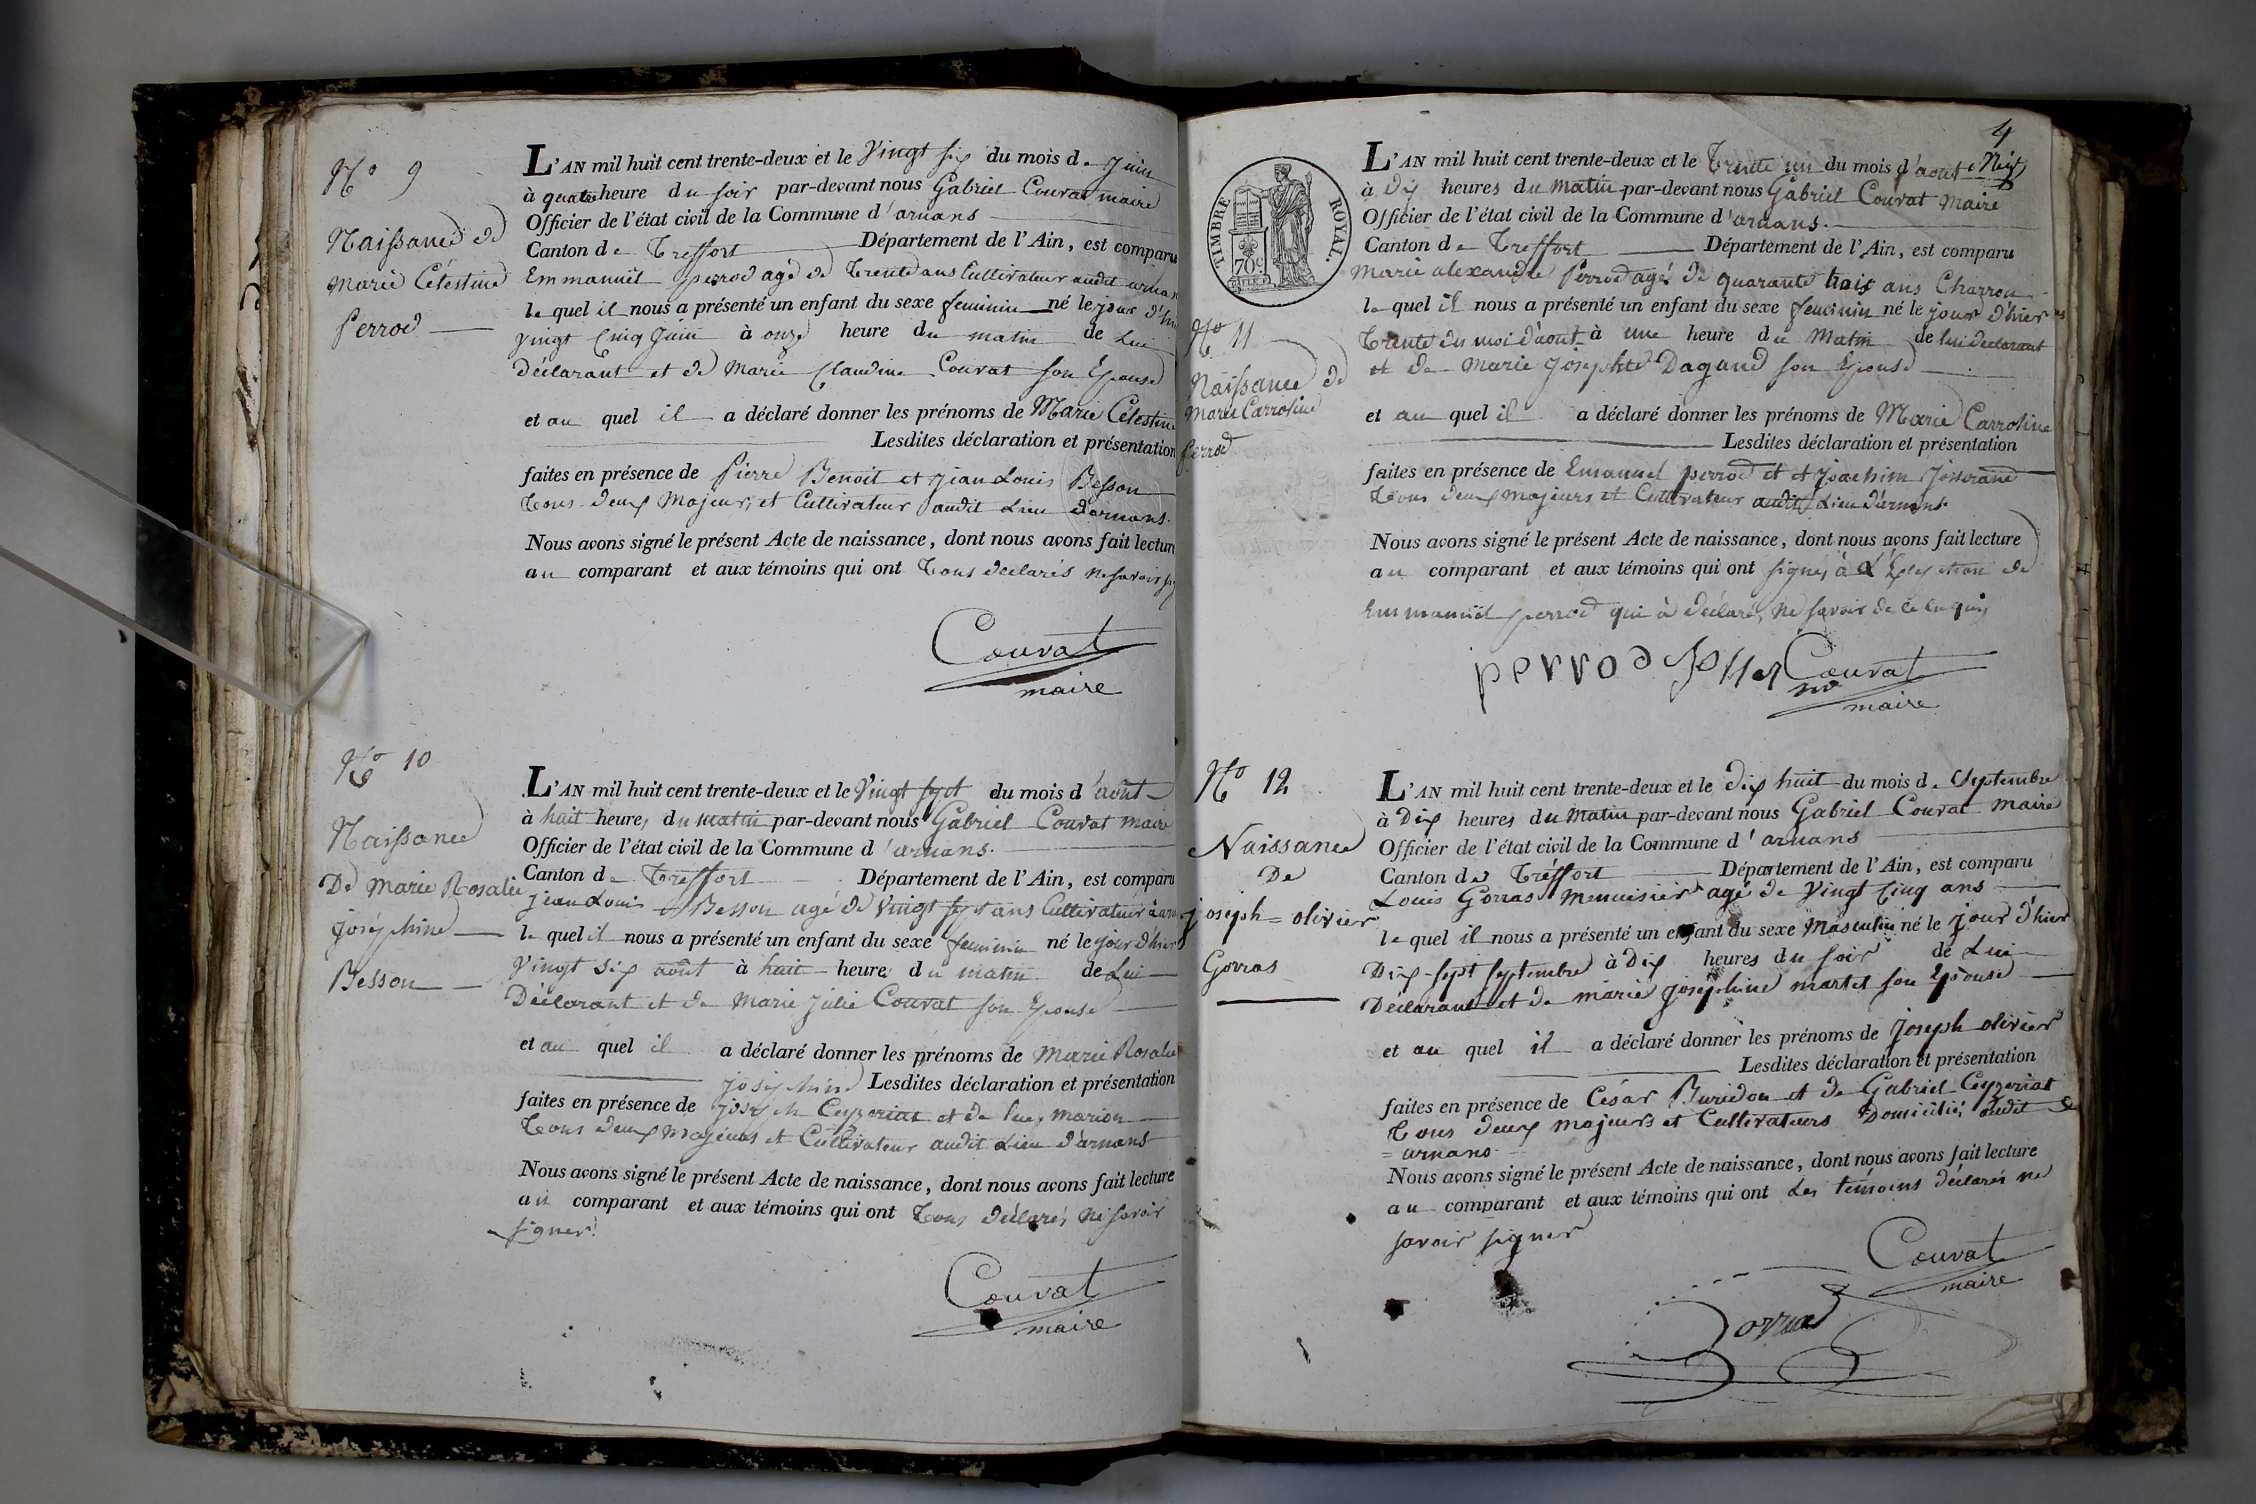 No 9
Naissance de
Marie Célestine
Perrod
L'AN mil huit cent trente-deux et le Vingt six du mois de Juin
à quatre heure du soir par-devant nous Gabriel Couvat maire
Officier de l'état civil de la Commune d'arnans
Canton de Treffort Département de l'Ain, est comparu
Emmanuël perrod agé de Trente ans Cultivateur audit arnans
le quel il nous a présenté un enfant du sexe feminin né le jour d'hier
vingt Cinq Juin à onze heure du matin de Lui
déclarant et de Marie Claudine Couvat son Epouse
et au quel il a déclaré donner les prénoms de Marie Célestine
Lesdites déclaration et présentation
faites en présence de Pierre Benoit et jean Louis Besson
Tous deux Majeurs et Cultivateur audit Lieu d'arnans.
Nous avons signé le présent Acte de naissance, dont nous avons fait lecture
au comparant et aux témoins qui ont Tous déclarés ne savoir
Couvat
maire
No 10
Naissance
De Marie Rosalie
joséphine
Besson
L'AN mil huit cent trente-deux et le Vingt sept du mois d'août
à huit heures du matin par-devant nous Gabriel Couvat maire
Officier de l'état civil de la Commune d'arnans.
Canton de Treffort Département de l'Ain, est comparu
jean Louis Besson agé de vingt sept ans Cultivateur à
le quel il nous a présenté un enfant du sexe feminin né le jour d'hier
Vingt six août à huit heure du matin de Lui
Déclarant et de Marie julie Couvat son Epouse
et au quel il a déclaré donner les prénoms de Marie Rosalie
joséphine Lesdites déclaration et présentation
faites en présence de joseph Ceyzeriat et de marion
Tous deux Majeurs et Cultivateur audit Lieu d'arnans
Nous avons signé le présent Acte de naissance, dont nous avons fait lecture
au comparant et aux témoins qui ont Tous déclarés ne savoir
signer.
Couvat
maire
4
TIMBRE ROYAL.
70c
No 11
Naissance de
Marie Carroline
Perrod
L'AN mil huit cent trente-deux et le Trente un du mois d'août
à Dix heures du matin par-devant nous Gabriel Couvat Maire
Officier de l'état civil de la Commune d'arnans.
Canton de Treffort Département de l'Ain, est comparu
Marie alexandre Perrod agé de quarante trois ans Charron
le quel il nous a présenté un enfant du sexe feminin né le jour d'hier
Trente du moi d'août à une heure du Matin de lui déclarant
et de Marie josephte Dagand son Epouse
et au quel il a déclaré donner les prénoms de Marie Carroline
Lesdites déclaration et présentation
faites en présence de Emanuel perrod et et joachim
Tous deux majeurs et Cultivateur audit Lieu d'arnans.
Nous avons signé le présent Acte de naissance, dont nous avons fait lecture
au comparant et aux témoins qui ont signés à L'Exception de
Emmanuël perrod qui à déclaré ne savoir de ce
perrod Couvat
maire
No 12
Naissance
De
joseph = olivier
Gorras
L'AN mil huit cent trente-deux et le dix huit du mois de Septembre
à Dix heures du Matin par-devant nous Gabriel Couvat maire
Officier de l'état civil de la Commune d'arnans
Canton de Tréffort Département de l'Ain, est comparu
Louis Gorras Menuisier agé de Vingt Cinq ans
le quel il nous a présenté un enfant du sexe Masculin né le jour d'hier
Dix-sept septembre à Dix heures du soir de Lui
Déclarant et de marie joséphine martet son Epouse
et au quel il a déclaré donner les prénoms de joseph olivier
Lesdites déclaration et présentation
faites en présence de César Buridon et de Gabriel Ceyzeriat
Tous deux majeurs et Cultivateurs Domicilié audit
= arnans
Nous avons signé le présent Acte de naissance, dont nous avons fait lecture
au comparant et aux témoins qui ont Les témoins déclarés ne
savoir signer
Couvat
maire
Gorras